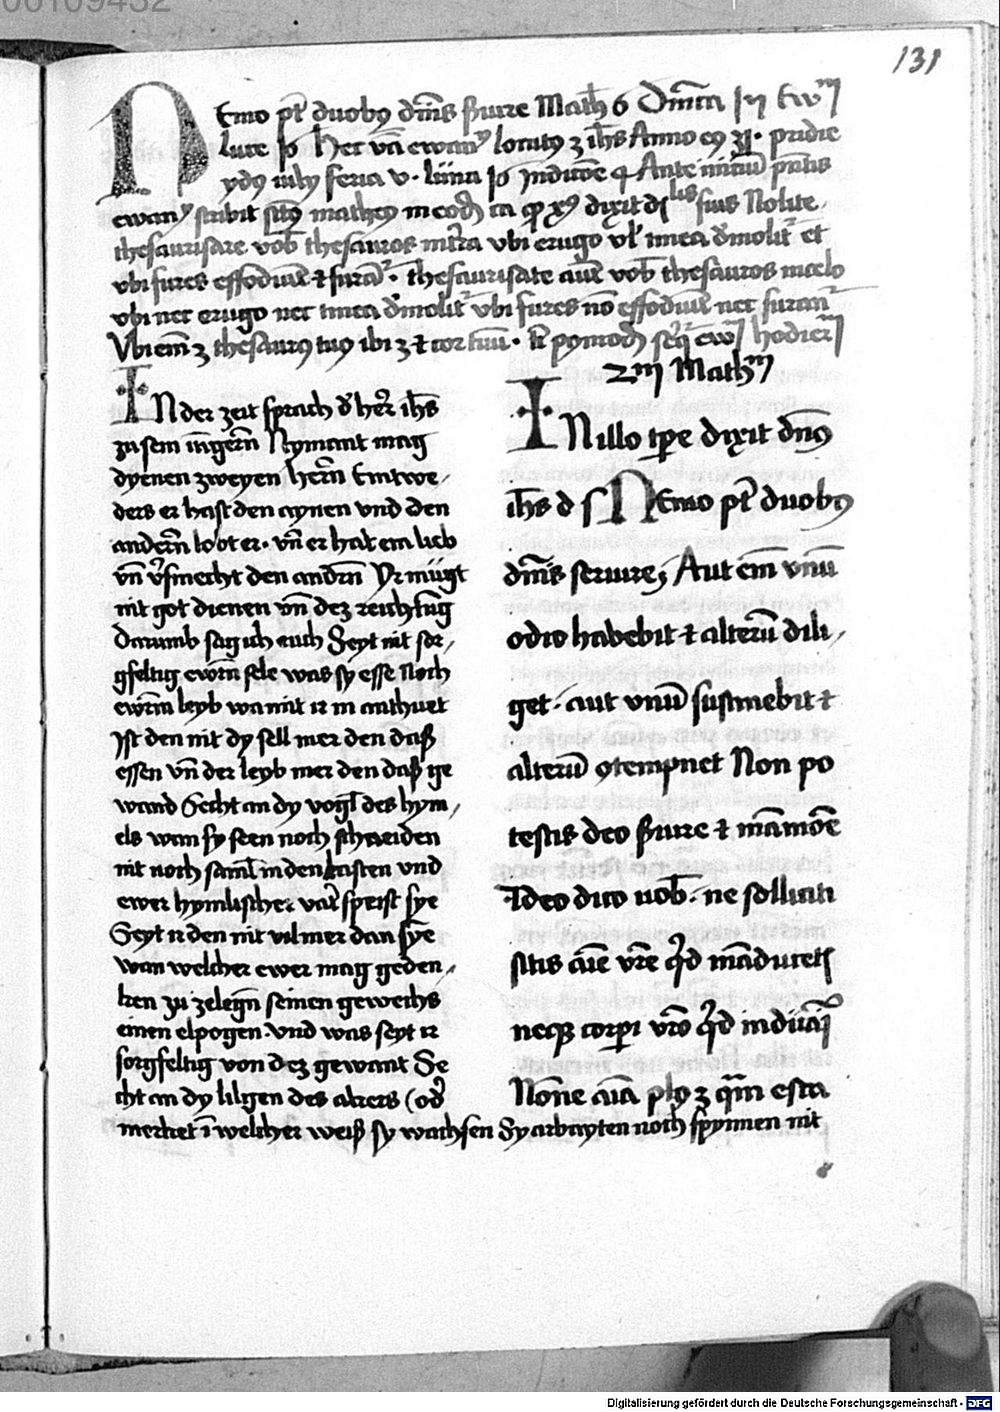 00109432
131
Nemo pt̄ duobꝫ dn̄is ẜuire Math̄ 6 Dn̄ica
luce Jo hec vn̄ ewan locutꝫ ʒ ih̄s Anno pridie
ydꝫ iulij feria v. luna Jndicōe Ante
ewan scribit matheꝫ in eodē xꝫ dixit suis Nolite
thesaurisare vob̄ thesauros in tr̄ra vbi erugo vl̓ tinea d̓molit᷑ et
vbi fures effodiūt ⁊ furāt᷑. thesaurisate aūt vob̄ thesauros in celo
vbi nec erugo nec tinea d̓molit᷑ vbi fures nō effodiūt nec furant᷑
Vbi em̄ ʒ thesaurꝫ tuꝫ ibi ʒ ⁊ cor tuū. hodiern
Jn der zeit sprach d̓ her̄ ih̄s
zu sein iūgern̄ Nymant mag
dyenen zweyen hern̄ Eintwe,
ders er hast den aynen vnd den
andern̄ lobt er. vn̄ er hat ein lieb
vn̄ v̓smecht den andrn̄ Yr mügt
nit got dienen vn̄ dez reichtūg
Darumb sag ich euch Seyt nit sor,
gfeltig ewrn̄ sele was sy esse Noch
ewrm̄ leyb wa mit ir in anthuet
Jst den nit dy sell mer den daß
essen vn̄ der leyb mer den daß ge
wand Secht an dy vogl̄ des hym,
els wan sy seen noch schneiden
nit noch saml̄ in den kasten vnd
ewer hymlischer vatr̄ speist sye
Seyt ir den nit vil mer dan sye
wan welcher ewer mag geden,
ken zu zelegn̄ seinen gewechs
einen elpogen. vnd was seyt ir
sorgfeltig von dez gewant Se
cht an dy lilgen des akers (od̓
merket ī welcher weiß sy wachsen Sy arbayten noch spynnen nit
Math
Jn illo tp̄e dixit dn̄s
ih̄s d s Nemo pt̄ duobꝫ
dn̄is seruire, Aut em̄ vnū
odio habebit ⁊ alterū dili,
get. aut vnū sustinebit ⁊
alterū ꝯtempnet Non po
testis deo ẜuire ⁊ māmōe
Ideo dico uob̄. ne solliciti
sitis aīe vr̄e qd̓ māducetis
neqꝫ corpi vr̄o qd̓ induāi
Nōne aīa plꝫ ʒ qm̄ esca